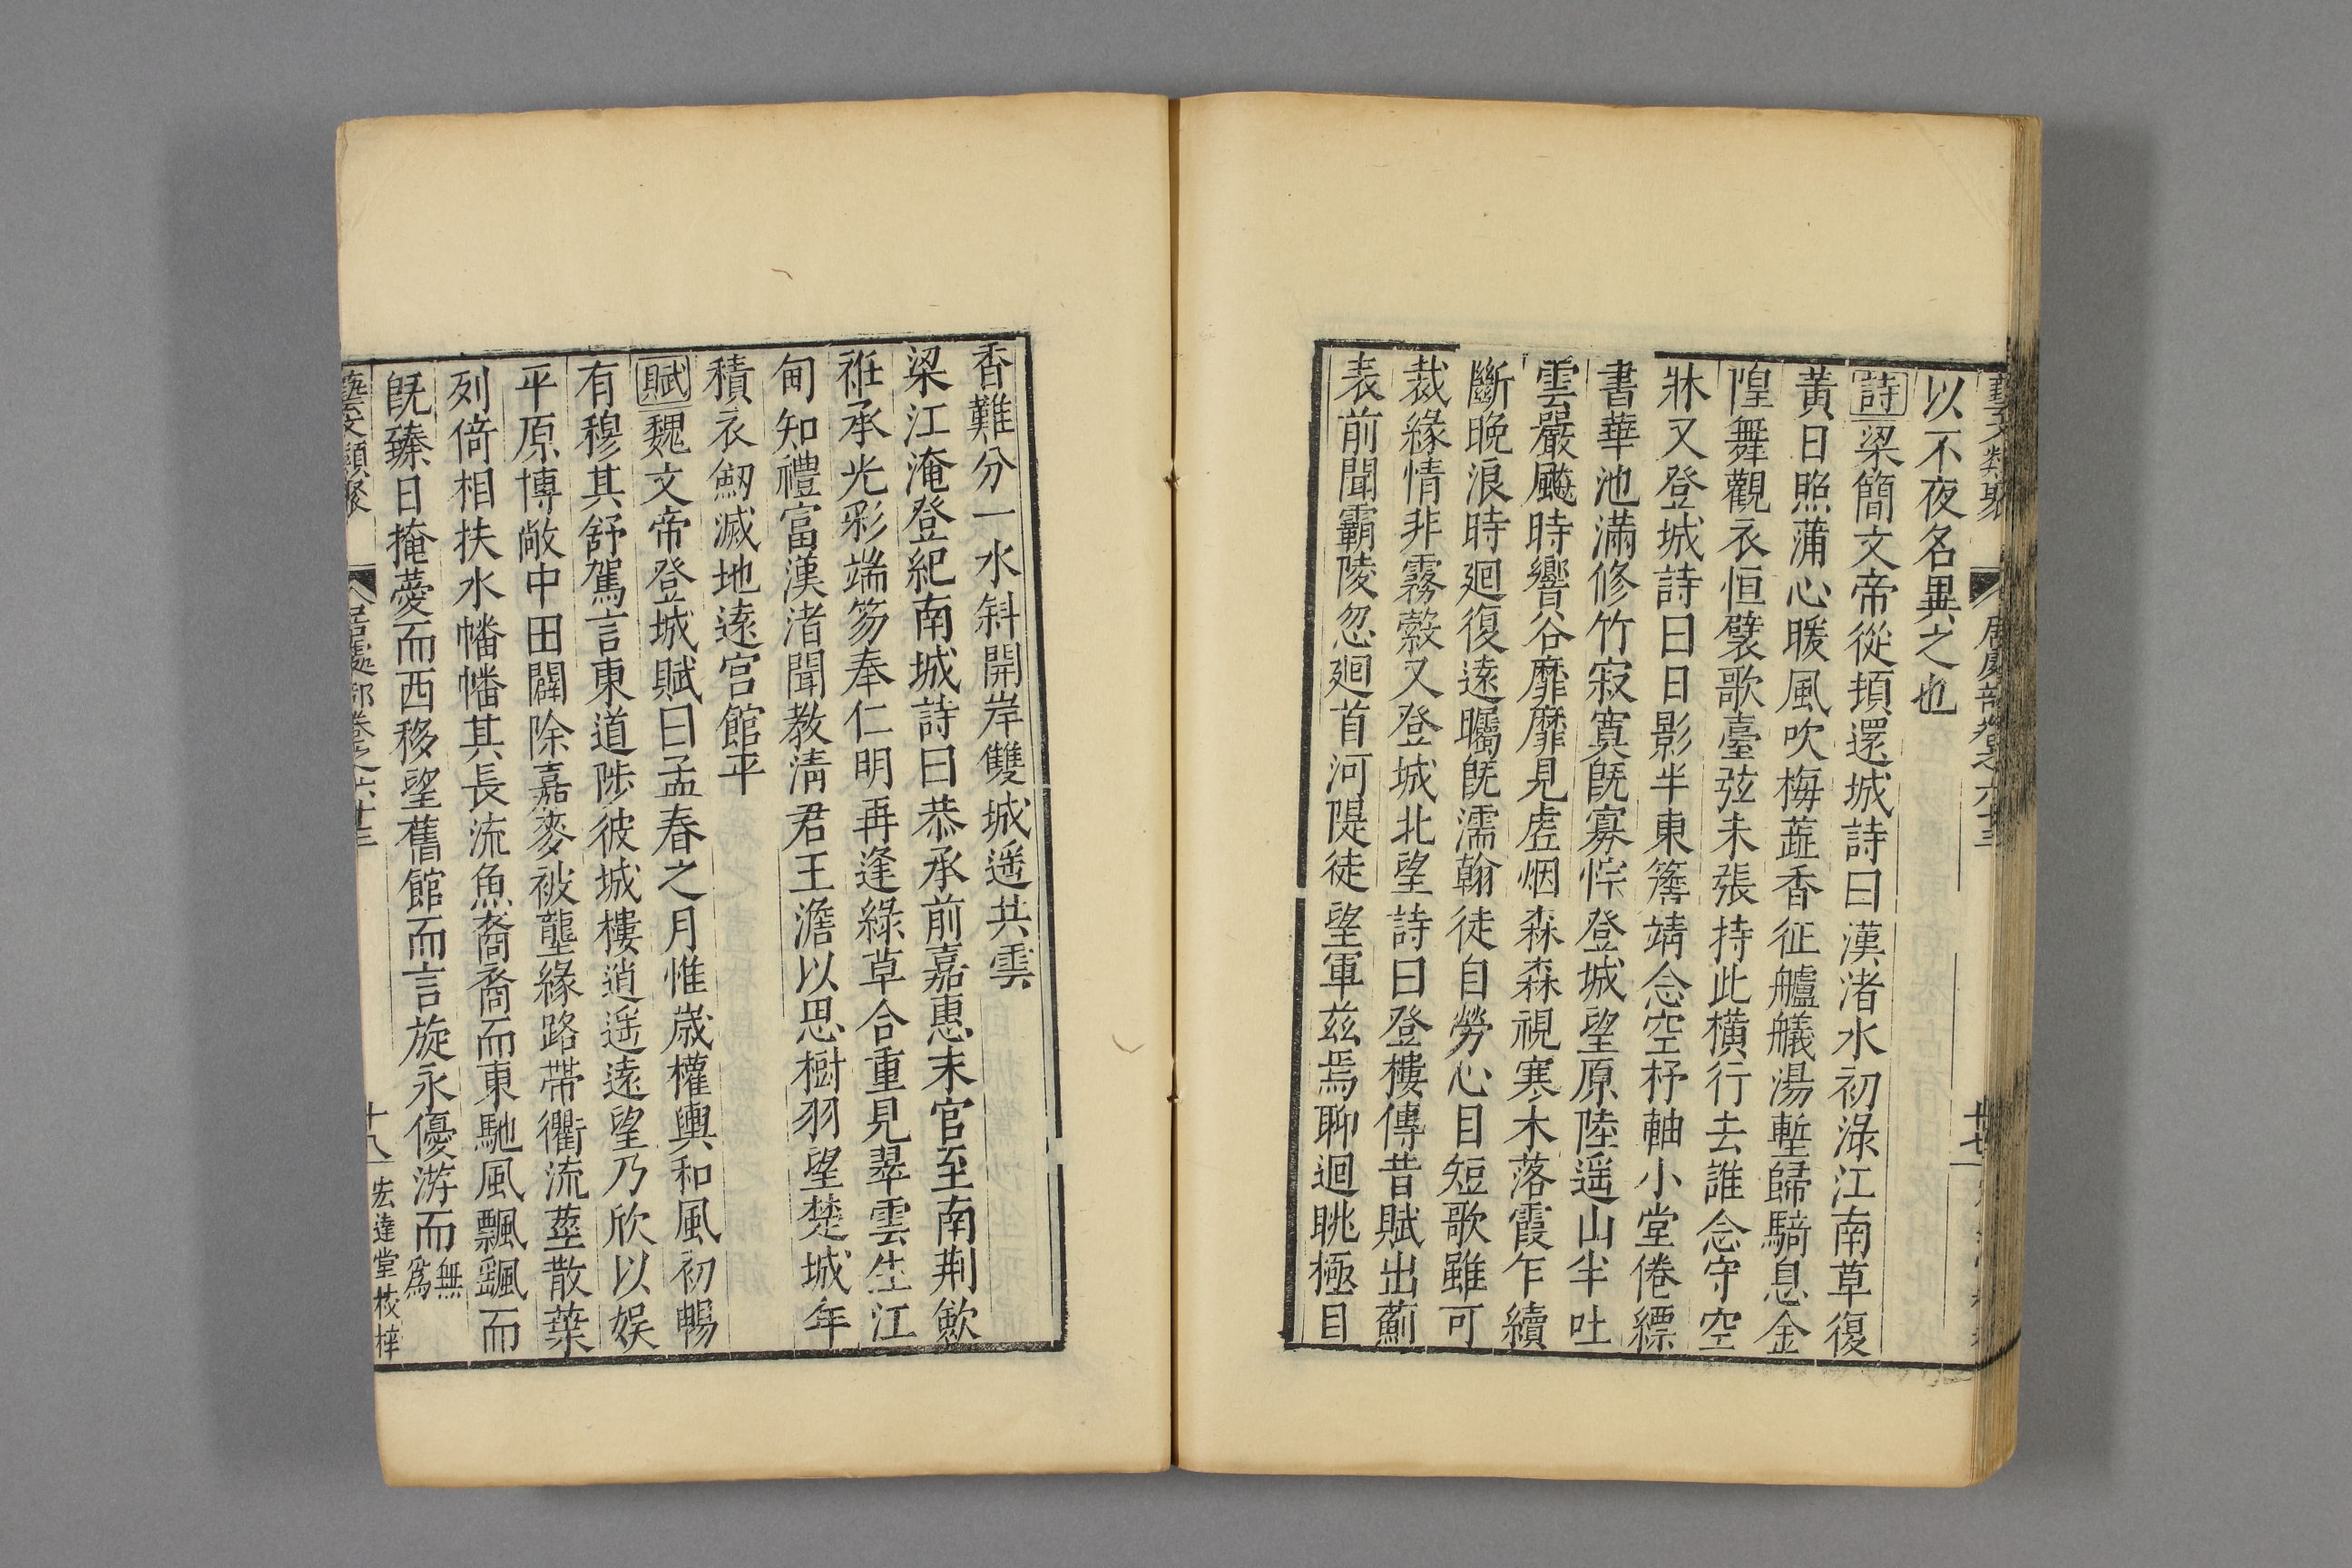 藝文類聚 居處部卷之六十三 十七
以不夜名異之也
詩梁簡文帝從頓還城詩曰漢渚水初淥江南草復
黃日照蒲心暖風吹梅蘂香征艫艤湯塹歸騎息金
隍舞觀衣恒襞歌臺弦未張持此橫行去誰念守空
牀又登城詩曰日影半東簷靖念空杼軸小堂倦縹
書華池滿修竹寂寞旣寡悰登城望原陸遥山半吐
雲嚴飈時響谷靡靡見虗烟森森視寒木落霞乍續
斷晚浪時廻復遠矚旣濡翰徒自勞心目短歌雖可
裁緣情非霧縠又登城北望詩曰登樓傳昔賦出薊
表前聞霸陵忽廻首河隄徒望軍茲焉聊迴眺極目
香難分一水斜開岸雙城遥共雲
梁江淹登紀南城詩曰恭承前嘉惠末官至南荆歛
衽承光彩端笏奉仁明再逢綠草合重見翠雲生江
甸知禮富漢渚聞教清君王澹以思樹羽望楚城年
積衣劒滅地遠宫館平
賦魏文帝登城賦曰孟春之月惟歲權輿和風初暢
有穆其舒駕言東道陟彼城樓逍遥遠望乃欣以娱
平原博敞中田闢除嘉麥被壟緣路帶衢流莖散葉
列倚相扶水幡幡其長流魚裔裔而東馳風飄颻而
旣臻日掩薆而西移望舊館而言旋永優游而無爲
藝文類聚 居處部卷之六十三 十八 宏達堂校梓